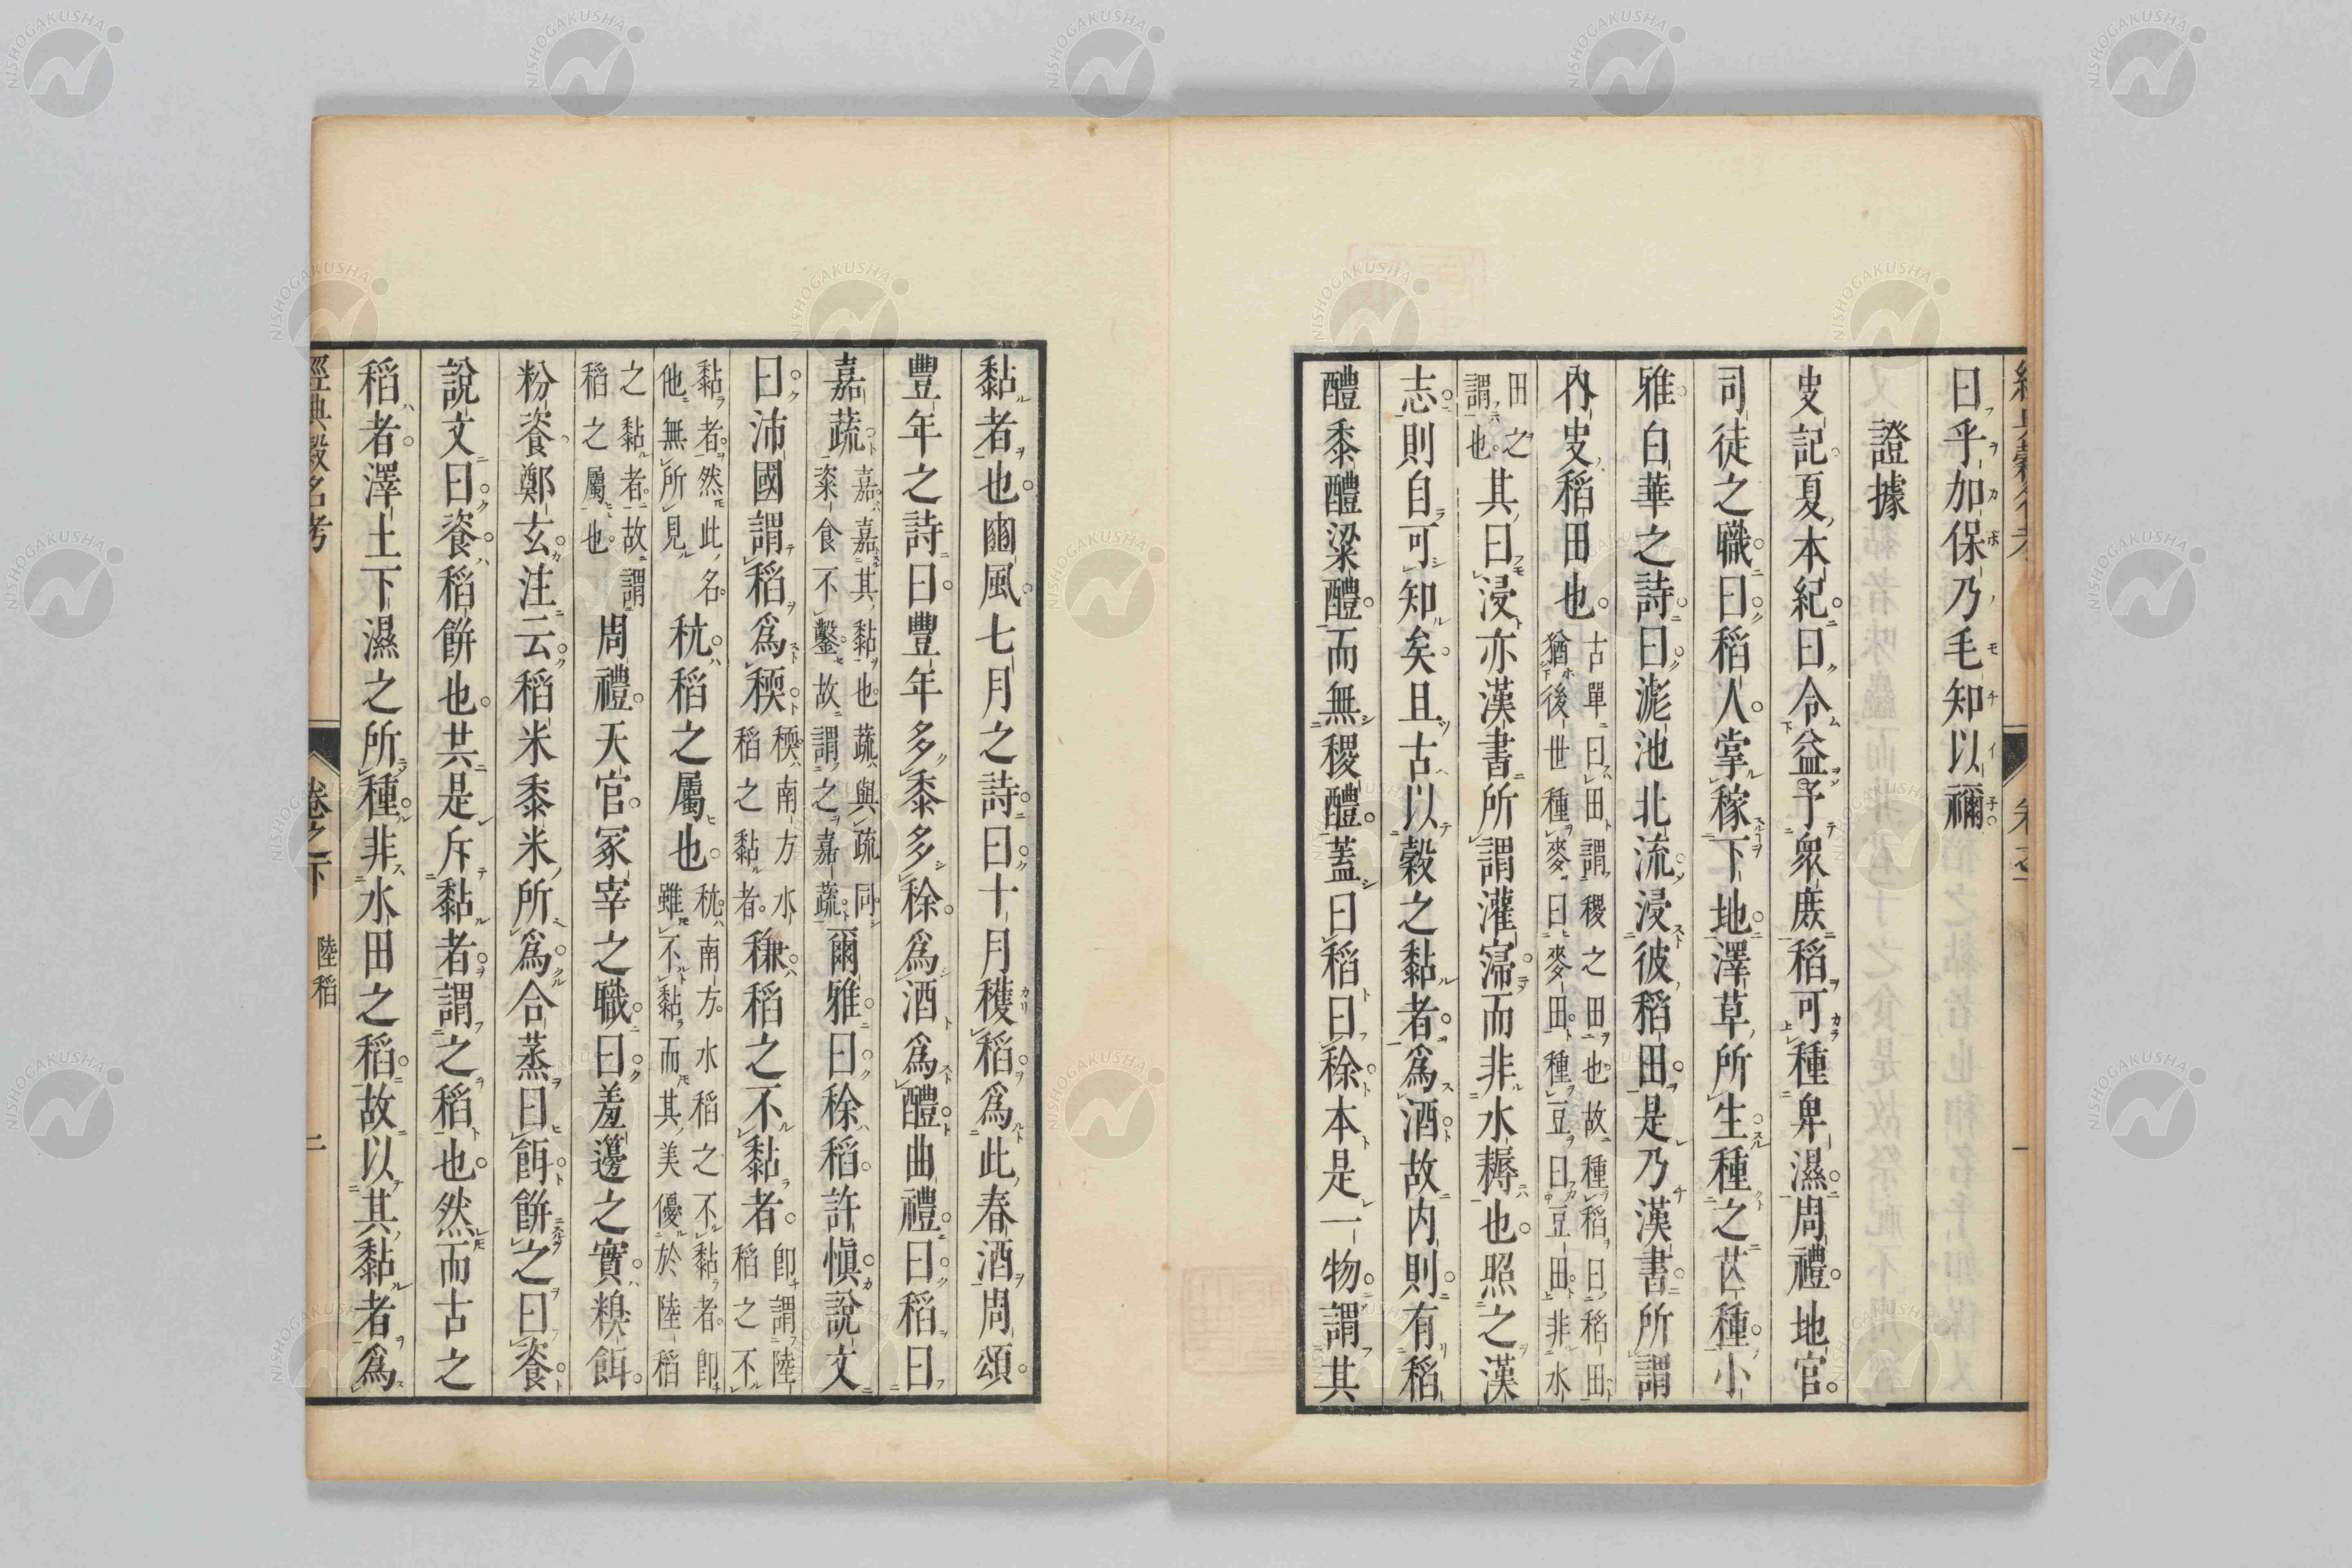 曰乎加保乃毛知以禰
證據
史記夏本紀曰令益予衆庶稻可種卑濕周禮地官
司徒之職曰稻人掌稼下地澤草所生種之芒種小
雅白華之詩曰滮池北流浸彼稻田是乃漢書所謂
內史稻田也
古單曰田謂稷之田也故種稻曰稻田
猶後世種麥曰麥田種豆曰豆田非水
田之
謂也
其曰浸亦漢書所謂灌寖而非水耨也照之漢
志則自可知矣且古以穀之黏者爲酒故内則有稻
醴黍醴粱醴而無稷醴蓋曰稻曰稌本是一物謂其
黏者也豳風七月之詩曰十月穫稻爲此春酒周頌
豐年之詩曰豐年多黍多稌爲酒爲醴曲禮曰稻曰
嘉蔬
嘉嘉其黏也蔬與疏同
粢食不鑿故謂之嘉蔬
爾雅曰稌稻許愼說文
曰沛國謂稻爲稬
稬南方水
稻之黏者
稴稻之不黏者
卽謂陸
稻之不
黏者然此名
他無所見
秔稻之屬也
秔南方水稻之不黏者卽
雖不黏而其美優於陸稻
之黏者故謂
稻之屬也
周禮天官冢宰之職曰羞籩之實糗餌
粉餈鄭玄注云稻米黍米所爲合蒸曰餌餅之曰餈
說文曰餈稻餅也共是斥黏者謂之稻也然而古之
稻者澤土下濕之所種非水田之稻故以其黏者爲
經典穀名考 卷之下 陸稻 二
NISHOGAKUSHA